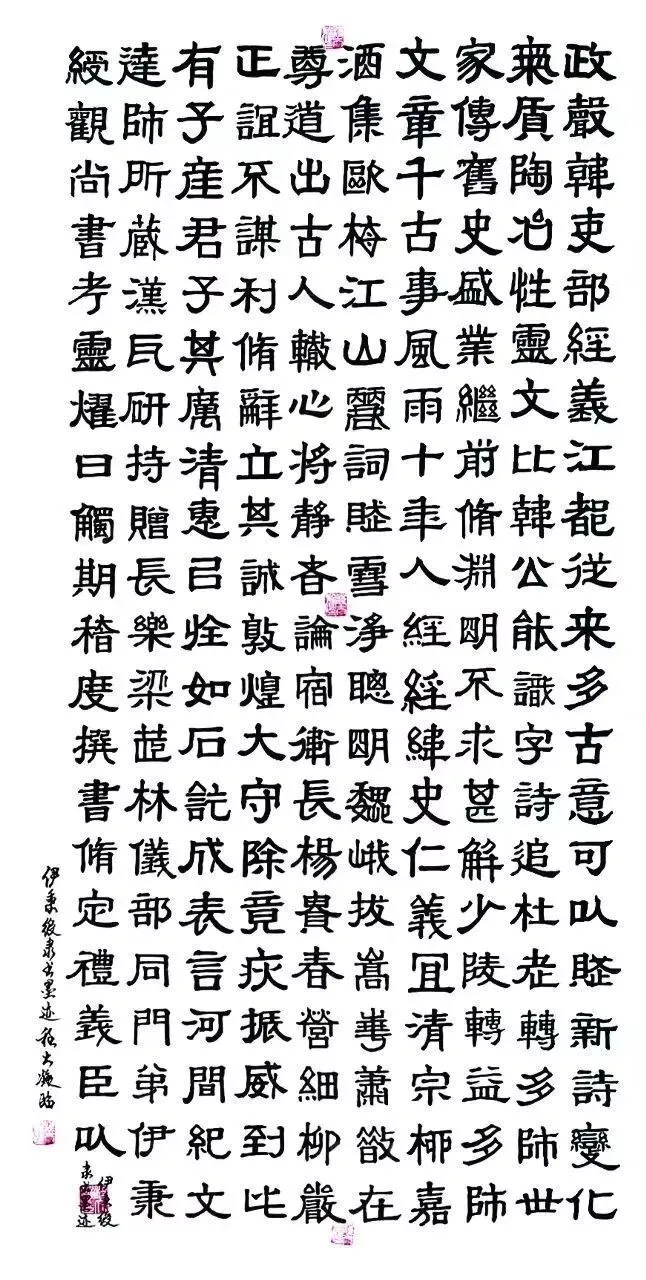 政聲韓吏部經義江都從来多古意可以賦新詩變化
無盾陶冶性靈文比韓公能識字詩追杜老轉多師世
家傳舊史盛業繼前脩淵明不求甚解少陵轉益多師
文章千古事風雨十年人經經緯史仁義冝清宗柳嘉
酒集歐梅江山麗詞賦雪淨聰明魏峨拔嵩華蕭散在
尊道出古人轍心將靜者論宿衛長楊貴春營細柳嚴
正誼不謀利脩辭立其誠敦煌大守除竟振威到此
有子産君子其厲清惠㠯如石訖成表言河間紀文
達師所蔵漢瓦研持贈長樂梁茝林儀部同門弟伊秉
綬觀尚書考靈燿曰觸期稽度撰書脩定禮義臣以
伊秉綬隶书墨迹
伊秉綬隶书墨迹程大凝臨